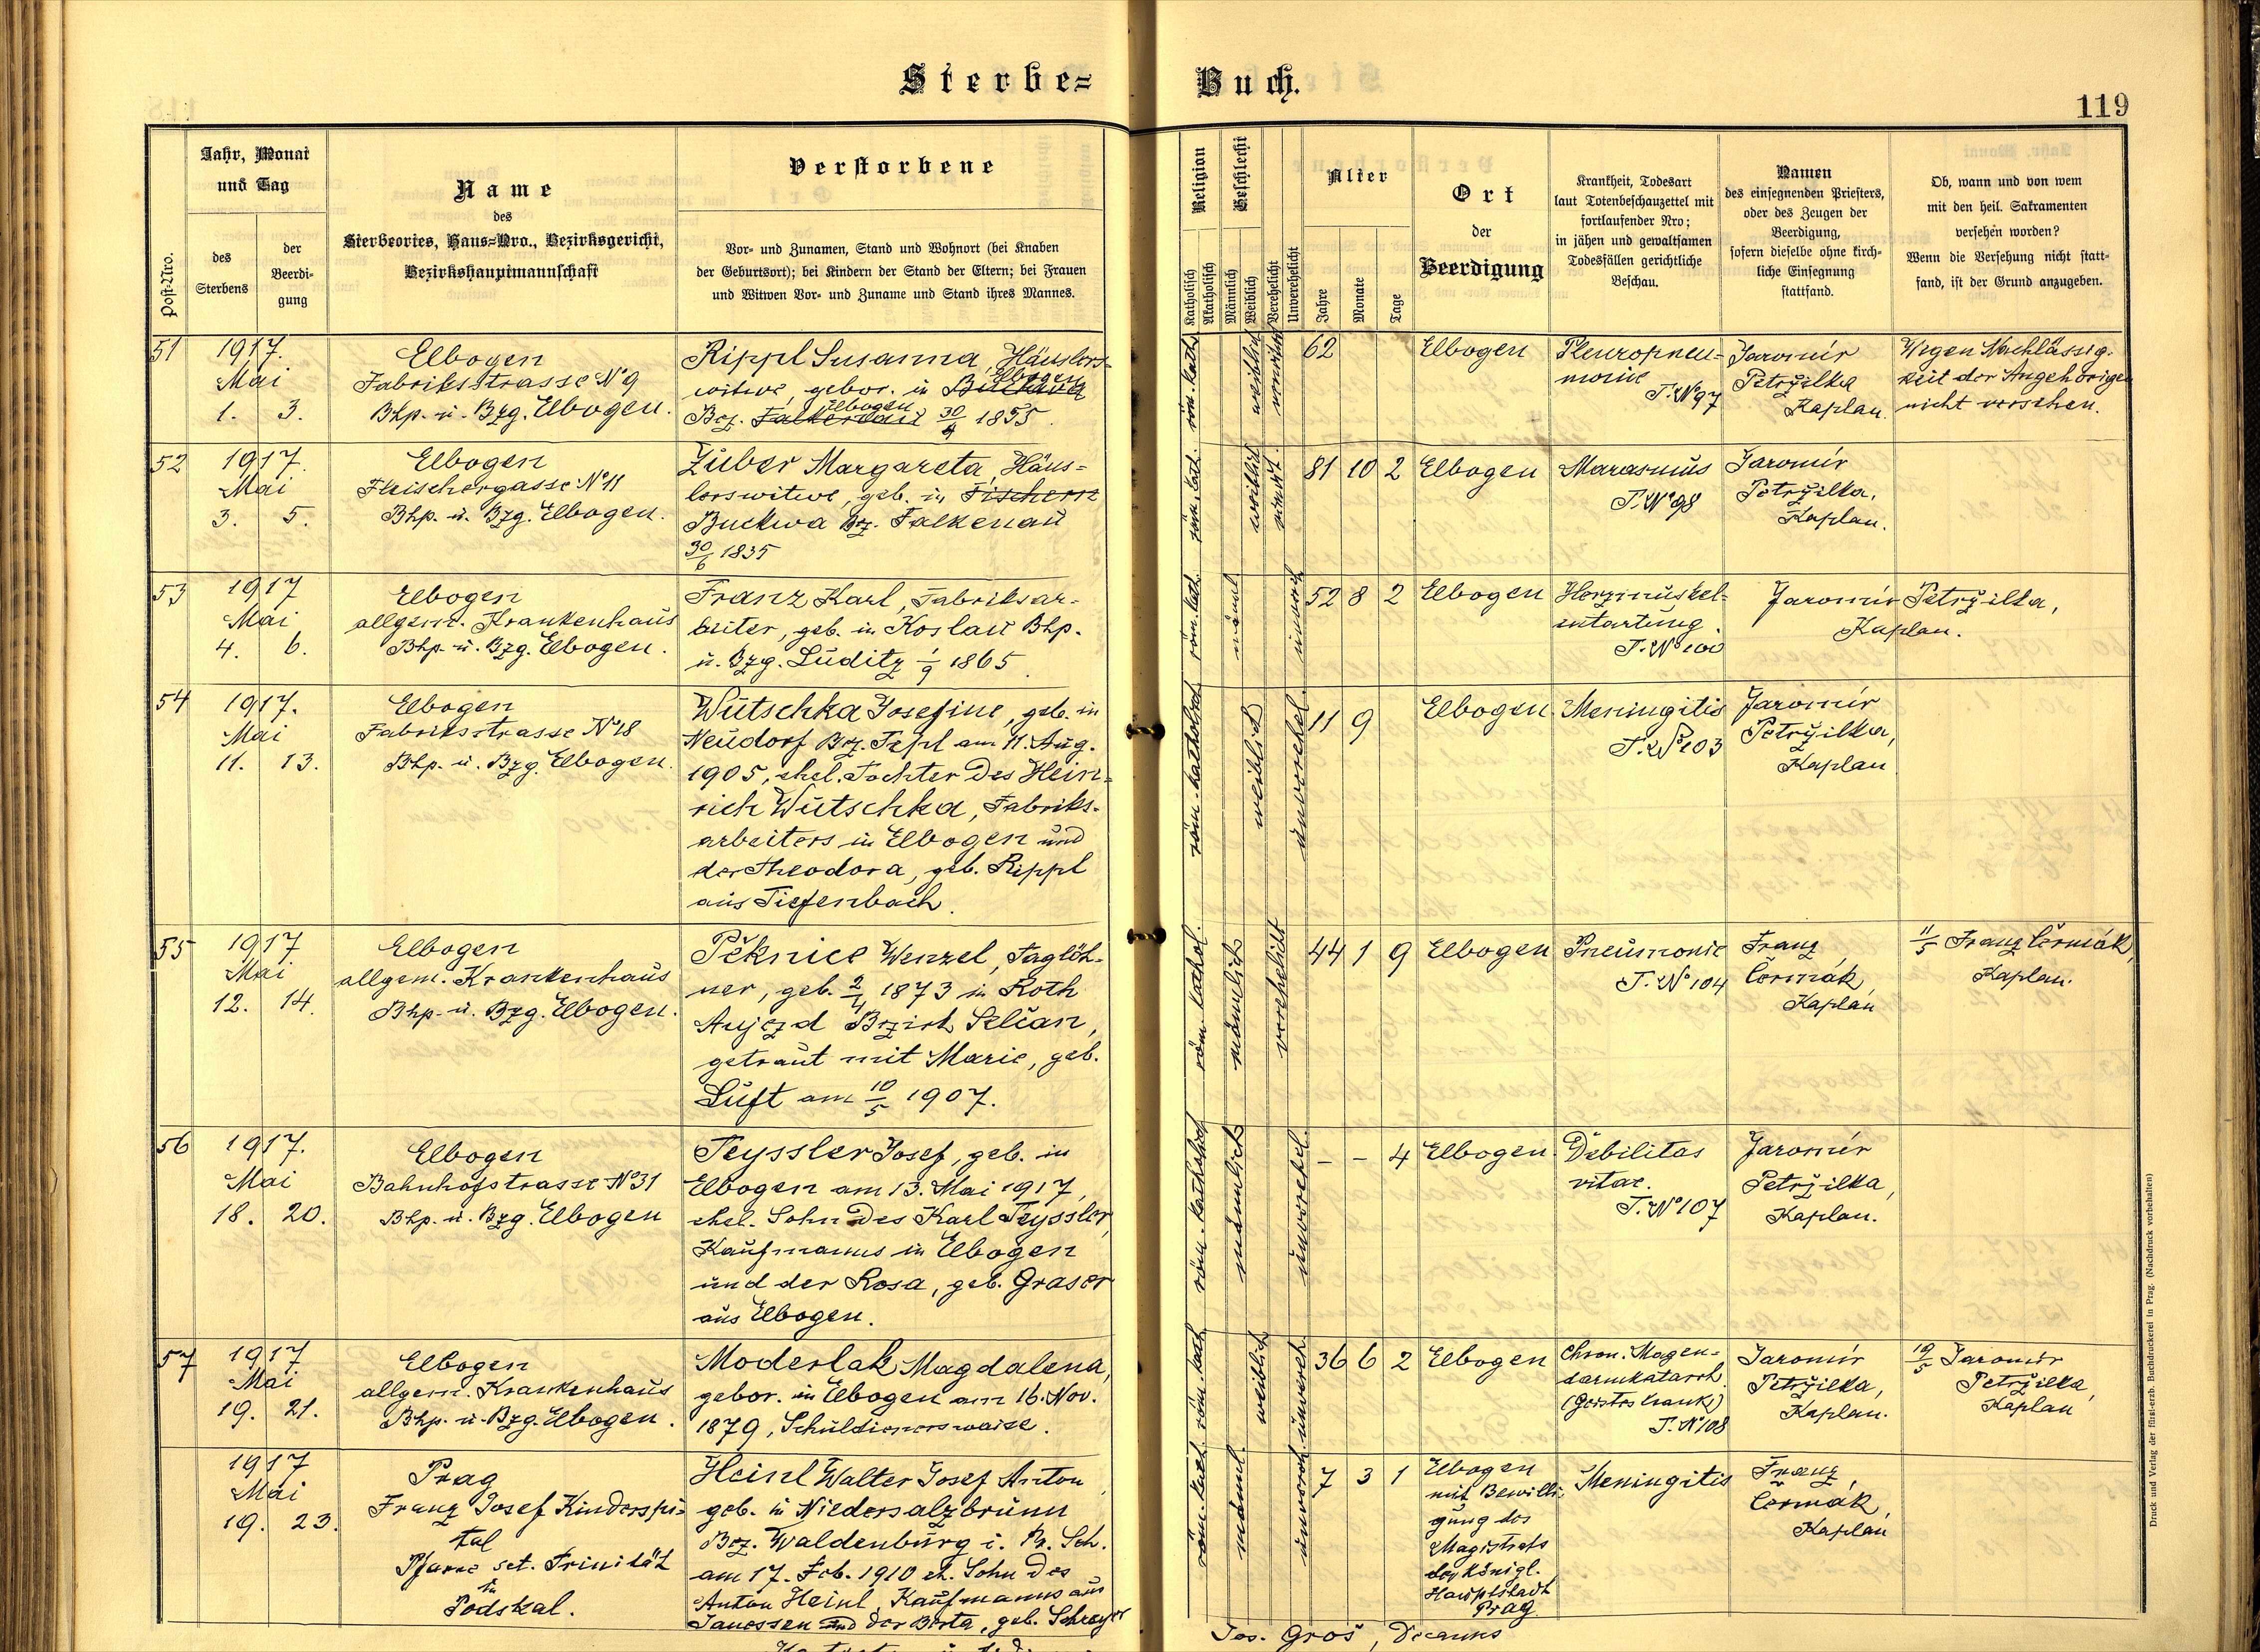 Sterbe=
Buch.
119
Post-Nro.
Jahr, Monat
und Tag
des
Sterbens
der
Beerdi-
gung
Name
des
Sterbeortes, Haus-Nro., Bezirksgericht,
Bezirkshauptmannschaft
Verstorbene
Vor- und Zunamen, Stand und Wohnort (bei Knaben
der Geburtsort); bei Kindern der Stand der Eltern; bei Frauen
und Witwen Vor- und Zuname und Stand ihres Mannes.
Religion
Katholisch
Akatholisch
Geschlecht
Männlich
Weiblich
Verehelicht
Unverehelicht
Alter
Jahre
Monate
Tage
Ort
der
Beerdigung
Krankheit, Todesart
laut Totenbeschauzettel mit
fortlaufender Nro;
in jähen und gewaltsamen
Todesfällen gerichtliche
Beschau.
Namen
des einsegnenden Priesters,
oder des Zeugen der
Beerdigung,
sofern dieselbe ohne kirch-
liche Einsegnung
stattfand.
Ob, wann und von wem
mit den heil. Sakramenten
versehen worden?
Wenn die Versehung nicht statt-
fand, ist der Grund anzugeben.
51
1917.
Mai
1. 3.
Elbogen
Fabriksstrasse No 9
Bhp. u. Bzg. Elbogen.
Rippl Susanna, Häuslers-
witwe, gebor. in Buckwa Elbogen
Bez. Falkenau Elbogen 30/4 1855.
röm. kath.
weiblich
verwitwet
62
Elbogen
Pleuropneu-
monie
T. No 97
Jaromír
Petržilka
Kaplan.
Wegen Nachlässig-
keit der Angehörigen
nicht versehen.
52
1917.
Mai
3. 5.
Elbogen
Fleischergasse No 11
Bhp. u. Bzg. Elbogen.
Zuber Margareta, Häus-
lerswitwe, geb. in Fischern
Buckwa Bez. Falkenau
30/6 1835
röm. kath.
weiblich
verwit.
81 10 2
Elbogen
Marasmus
T. No 98
Jaromír
Petržilka,
Kaplan.
53
1917
Mai
4. 6.
Elbogen
allgem. Krankenhaus
Bhp. u. Bzg. Elbogen.
Franz Karl, Fabriksar-
beiter, geb. in Koslau Bhp.
u. Bzg. Luditz 1/9 1865.
röm. kath.
männl
unvereh
52 8 2
Elbogen
Herzmuskel-
entartung
T. No 100
Jaromír Petržilka,
Kaplan.
54
1917.
Mai
11. 13.
Elbogen
Fabriksstrasse No 18
Bhp. u. Bzg. Elbogen.
Wutschka Josefine, geb. in
Neudorf Bez. Tepl am 11. Aug.
1905, ehel. Tochter des Hein-
rich Wutschka, Fabriks-
arbeiters in Elbogen und
der Theodora, geb. Rippl
aus Tiefenbach.
röm. katholisch
weiblich
unverehel.
11 9
Elbogen
Meningitis
T. No 103
Jaromír
Petržilka,
Kaplan
55
1917
Mai
12. 14.
Elbogen
allgem. Krankenhaus
Bhp. u. Bzg. Elbogen.
Pěknice Wenzel, Taglöh-
ner, geb. 2/4 1873 in Roth
Aujezd Bezirk Selčan,
getraut mit Marie, geb.
Luft am 10/5 1907.
röm. kathol.
männlich
verehelicht
44 1 9
Elbogen
Pneumonie
T. No 104
Franz
Čermák,
Kaplan
11/5 Franz Čermák,
Kaplan.
56
1917.
Mai
18. 20.
Elbogen
Bahnhofstrasse No 31
Bhp. u. Bzg. Elbogen
Teyssler Josef, geb. in
Elbogen am 13. Mai 1917,
ehel. Sohn des Karl Teyssler,
Kaufmanns in Elbogen
und der Rosa, geb. Graser
aus Elbogen.
röm. katholisch
männlich
unverehel.
- - 4
Elbogen
Debilitas
vitae.
T. No 107
Jaromír
Petržilka,
Kaplan.
57
1917
Mai
19. 21.
Elbogen
allgem. Krankenhaus
Bhp. u. Bzg. Elbogen.
Moderlak Magdalena,
gebor. in Elbogen am 16. Nov.
1879, Schuldienerswaise.
röm. kath
weiblich
unvereh.
36 6 2
Elbogen
Chron. Magen-
darmkatarrh.
(Geisteskrank)
T. No 108
Jaromír
Petržilka,
Kaplan.
19/5 Jaromír
Petržilka,
Kaplan
1917
Mai
19. 23.
Prag
Franz Josef Kinderspi-
tal
Pfarre sct. Trinität
in
Podskal.
Heinl Walter Josef Anton,
geb. in Niedersalzbrunn
Bez. Waldenburg i. Pr. Sch.
am 17. Feb. 1910 eh. Sohn des
Anton Heinl, Kaufmanns aus
Janessen und der Berta, geb. Schreyer
röm. kath.
männl.
unvereh.
7 3 1
Elbogen
mit Bewilli-
gung des
Magistrats
der königl.
Hauptstadt
Prag.
Meningitis
Franz
Čermák,
Kaplan
Jos. Groš, Decanus
Druck und Verlag der fürst-erzb. Buchdruckerei in Prag. (Nachdruck vorbehalten)